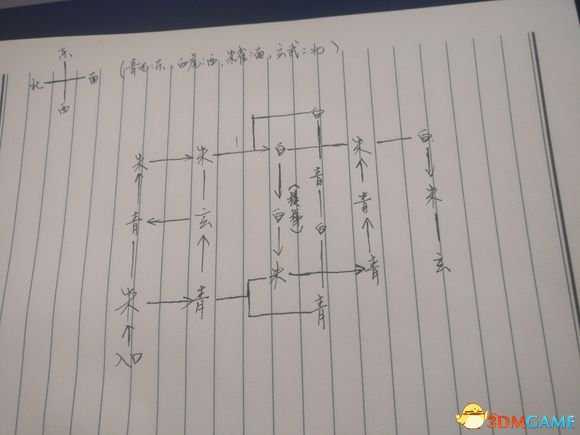 东
北 南
西
(青龙:东,白虎:西,朱雀:南,玄武:北)
白
朱 朱 1 白 朱 白
青 玄 白 青 青 朱
白
朱 青 朱 青 玄
青
入口
3DMGAME